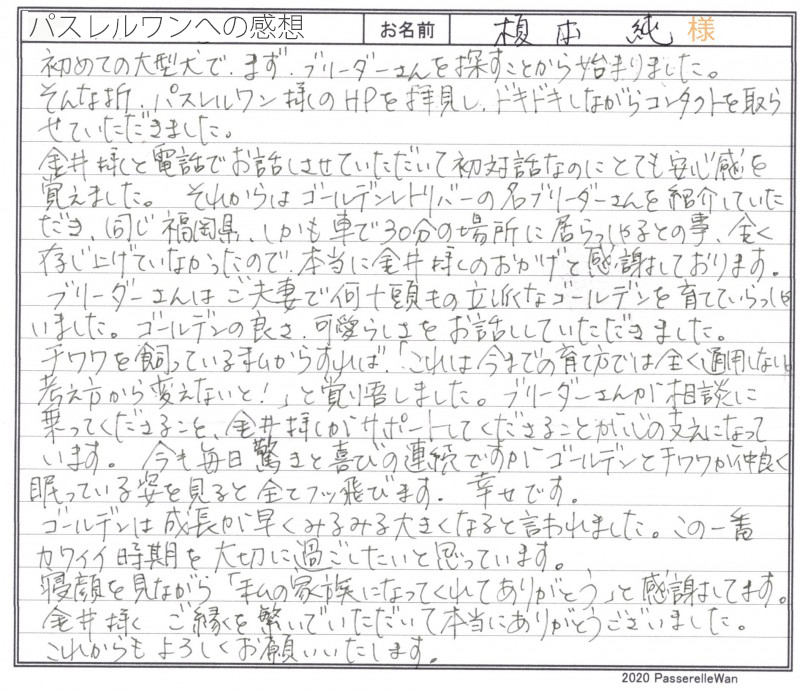 パスレルワンへの感想 お名前 榎本 純 様
初めての大型犬で、まず、ブリーダーさんを探すことから始まりました。
そんな折、パスレルワン様のHPを拝見し、ドキドキしながらコンタクトを取ら
せていただきました。
金井様と電話でお話しさせていただいて初対話なのにとても安心感を
覚えました。 それからはゴールデンレトリバーの名ブリーダーさんを紹介していた
だき、同じ福岡県、しかも車で30分の場所に居らっしゃるとの事、全く
存じ上げていなかったので、本当に金井様のおかげと感謝しております。
ブリーダーさんはご夫妻で何十頭もの立派なゴールデンを育てていらっしゃ
いました。ゴールデンの良さ、可愛らしさをお話ししていただきました。
チワワを飼っている私からすれば、「これは今までの育て方では全く通用しないと
考え方から変えないと!」と覚悟しました。ブリーダーさんが相談に
乗ってくださること、金井様がサポートしてくださることが心の支えになって
います。 今も毎日驚きと喜びの連続ですが、ゴールデンとチワワが仲良く
眠っている姿を見ると全てフッ飛びます。 幸せです。
ゴールデンは成長が早くみるみる大きくなると言われました。この一番
カワイイ時期を大切に過ごしたいと思っています。
寝顔を見ながら「私の家族になってくれてありがとう」と感謝してます。
金井様、ご縁を繋いでいただいて本当にありがとうございました。
これからもよろしくお願いいたします。
2020 PasserelleWan